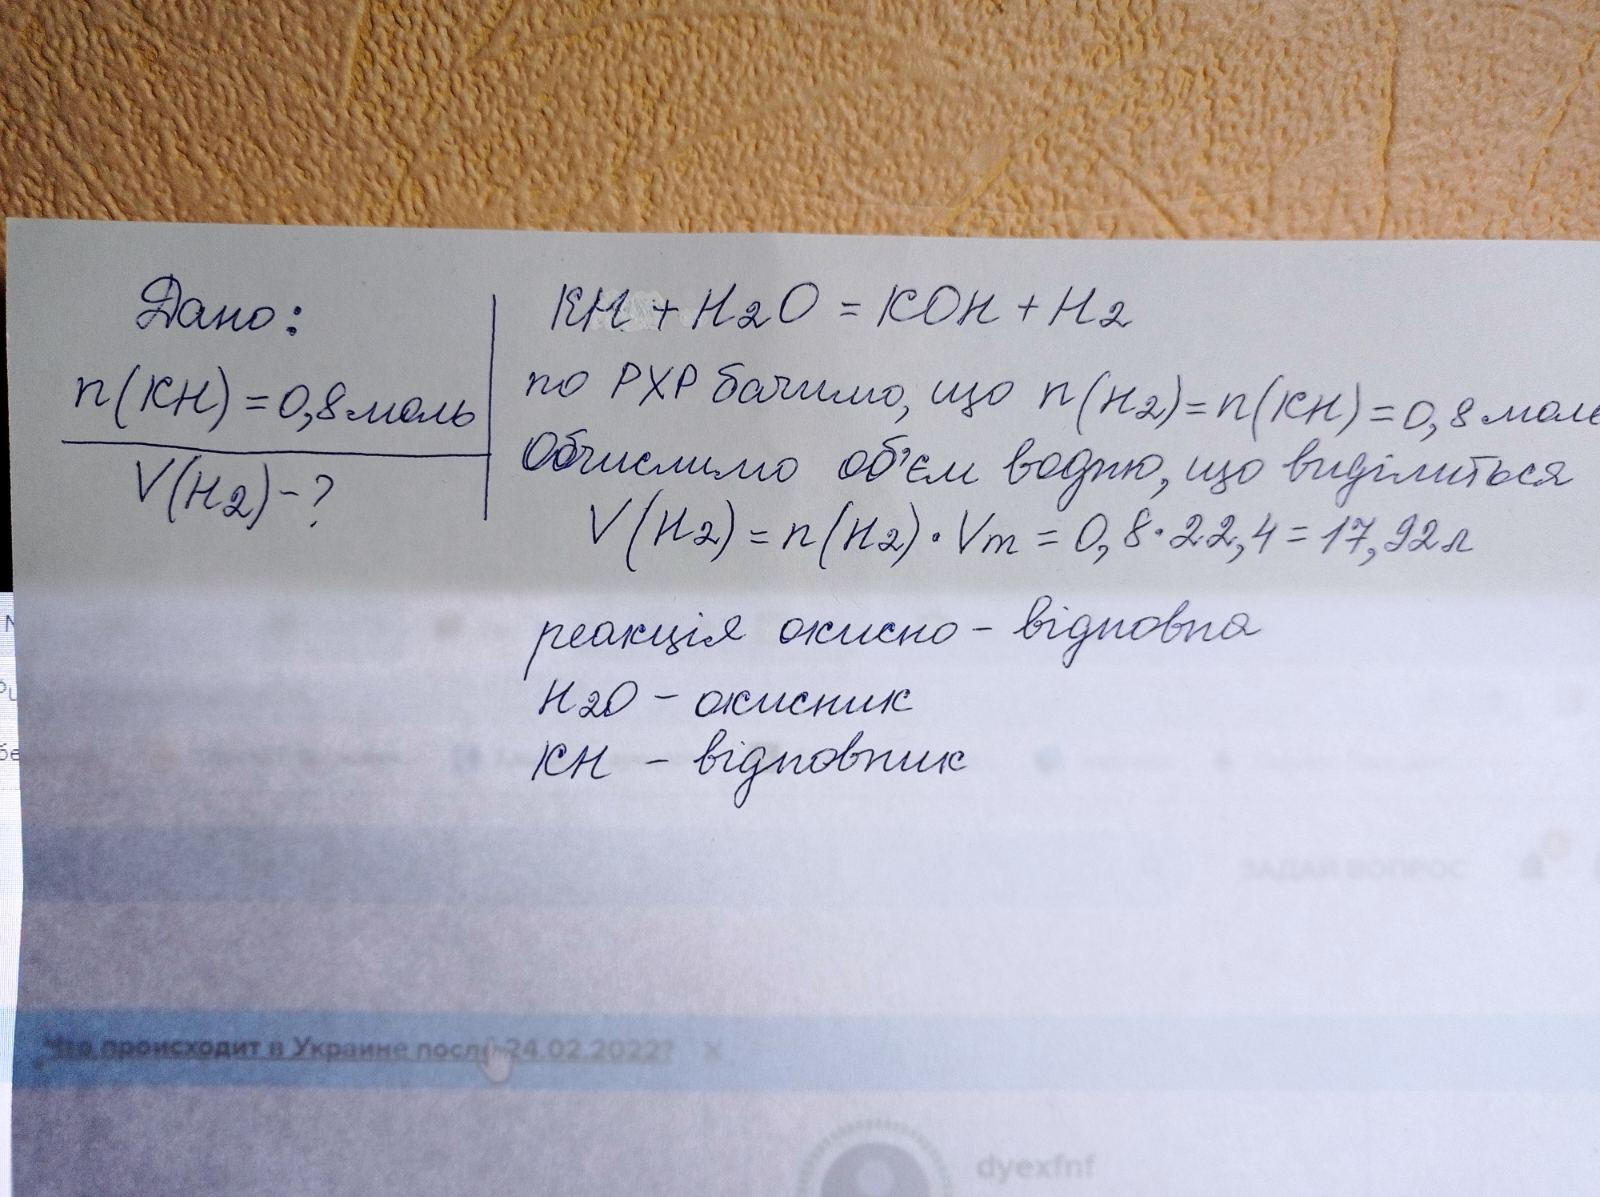 Дано:
n(KH) = 0,8 моль
V(H2) - ?
KH + H2O = KOH + H2
по РХР бачимо, що n(H2) = n(KH) = 0,8 моль
Обчислимо об'єм водню, що виділиться
V(H2) = n(H2) · Vm = 0,8 · 22,4 = 17,92 л
реакція окисно - відновна
H2O - окисник
KH - відновник
ЗАДАЙ ВОПРОС
Что происходит в Украине после 24.02.2022? X
dyexfnf